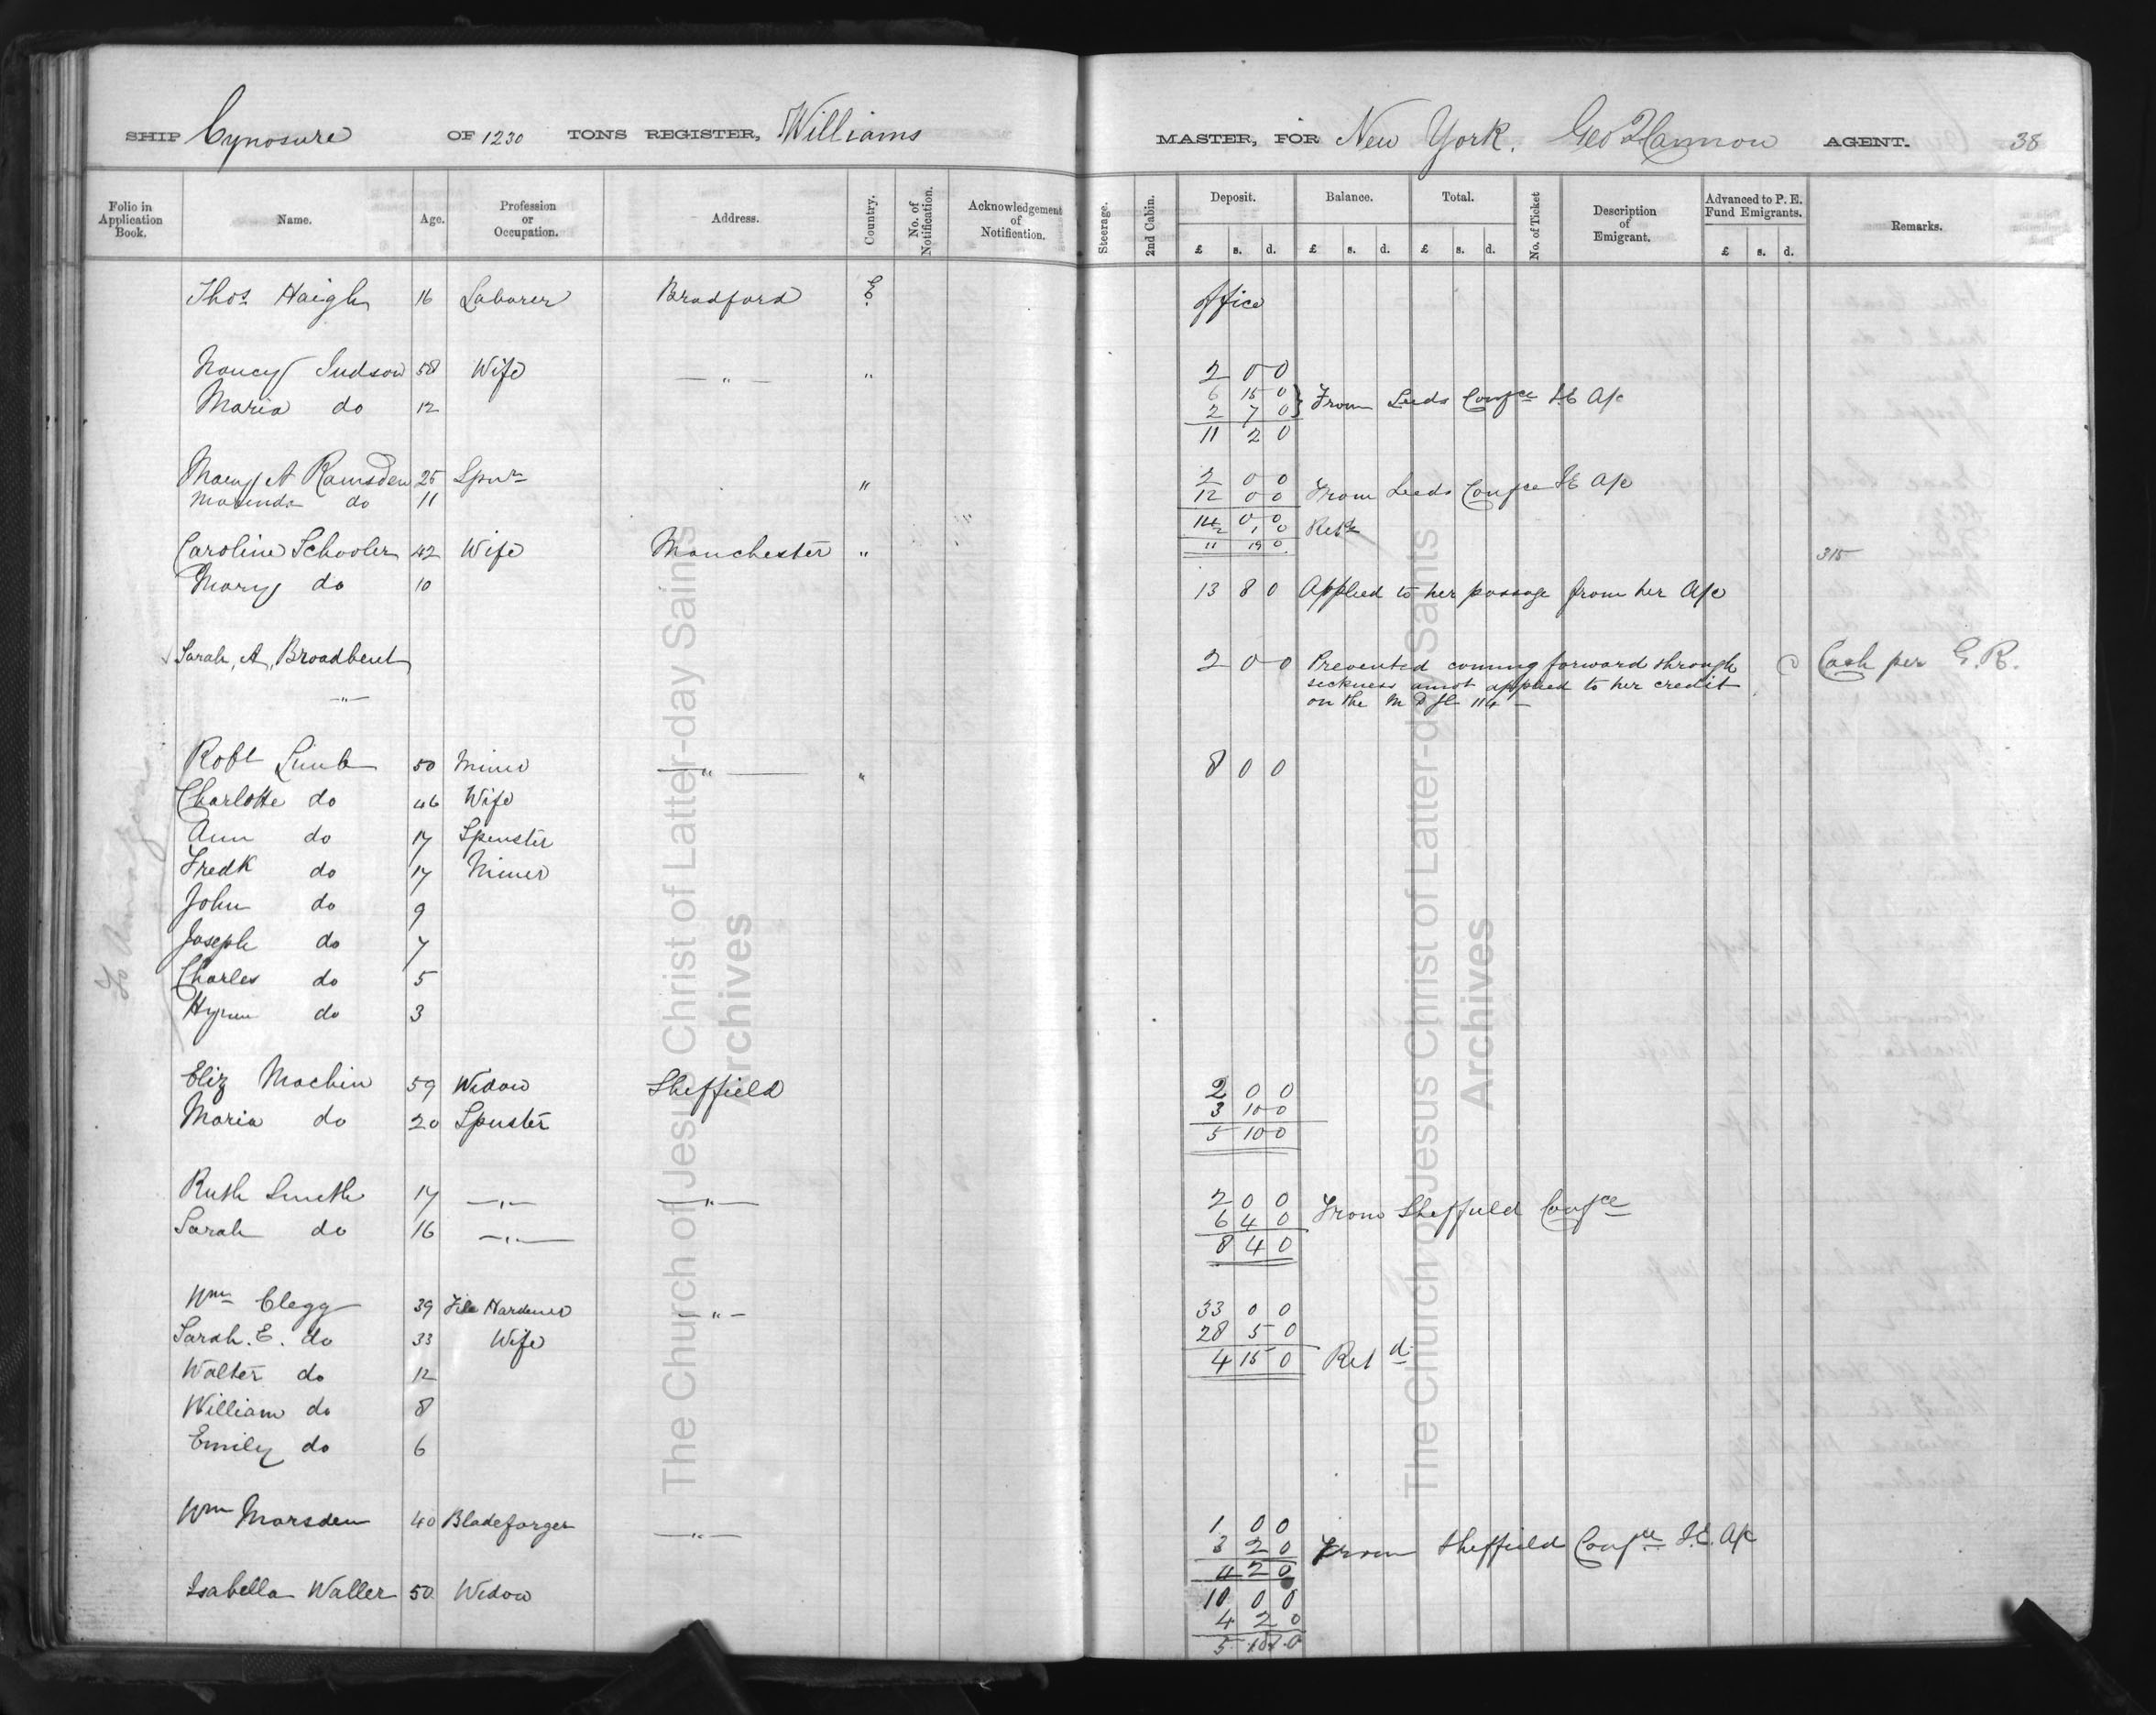 SHIP Cynosure OF 1230 TONS REGISTER, Williams MASTER, FOR New York. Geo Hannon AGENT. 38
Folio in Application Book. Name. Age. Profession or Occupation. Address. Country. No. of Notification. Acknowledgement of Notification. Steerage. 2nd Cabin. Deposit. Balance. Total. No. of Ticket Description of Emigrant. Advanced to P. E. Fund Emigrants. Remarks.
£ s. d. £ s. d. £ s. d. £ s. d.
Thos Haigh 16 Laborer Bradford E. office
Nancy Judson 58 Wife — " — " 2 0 0
Maria do 12 6 15 0 } From Leeds Confce I.E A/c
2 7 0
11 2 0
Mary A Ramsden 25 Spnr " 2 0 0
do 11 12 0 0 From Leeds Confce I.E A/c
14 0 0
2 1 0 Retd
Caroline Schooler 42 Wife Manchester " 11 19 0 315
Mary do 10 13 8 0 Applied to her passage from her A/c
Sarah, A, Broadbent 2 0 0 Prevented coming forward through @ Cash per G. R.
— " — sickness amot applied to her credit
on the 114 —
Robt Limb 50 Miner — " — " 8 0 0
Charlotte do 46 Wife
Ann do 17 Spenster
Fredk do 17 Miner
John do 9
Joseph do 7
Charles do 5
Hyrum do 3
Eliz Machin 59 Widow Sheffield 2 0 0
Maria do 20 Spnster 3 10 0
5 10 0
Ruth Smith 17 — " — — " — 2 0 0
Sarah do 16 — " — 6 4 0 From Sheffield Confce
8 4 0
Wm Clegg 39 File Hardener — " — 33 0 0
Sarah. E. do 33 Wife 28 5 0
Walter do 12 4 15 0 Retd
William do 8
Emily do 6
Wm Marsden 40 Bladeforger — " — 1 0 0
3 2 0 From Sheffield Confce I.E. A/c
4 2 0
Isabella Waller 50 Widow 10 0 0
4 2 0
5 18 0
The Church of Jesus Christ of Latter-day Saints
Archives
The Church of Jesus Christ of Latter-day Saints
Archives